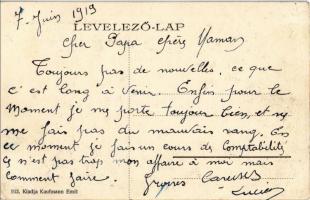 7. Juin 1919
LEVELEZŐ-LAP
cher Papa chère Maman
Toujours pas de nouvelles, ce que
c'est long à venir. Enfin pour le
moment je me porte toujours bien, et ne
me fais pas du mauvais sang. En
ce moment je fais un cours de Comptabilité
ce n'est pas trop mon affaire à moi mais
comment faire. Grosses Caresses
Lucien
112. Kiadja Kaufmann Emil